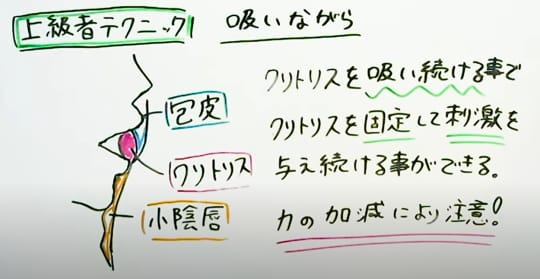 上級者テクニック 吸いながら
クリトリスを吸い続ける事で
包皮
クリトリスを固定して刺激を
クリトリス
与え続ける事ができる。
小陰唇
力の加減により注意!